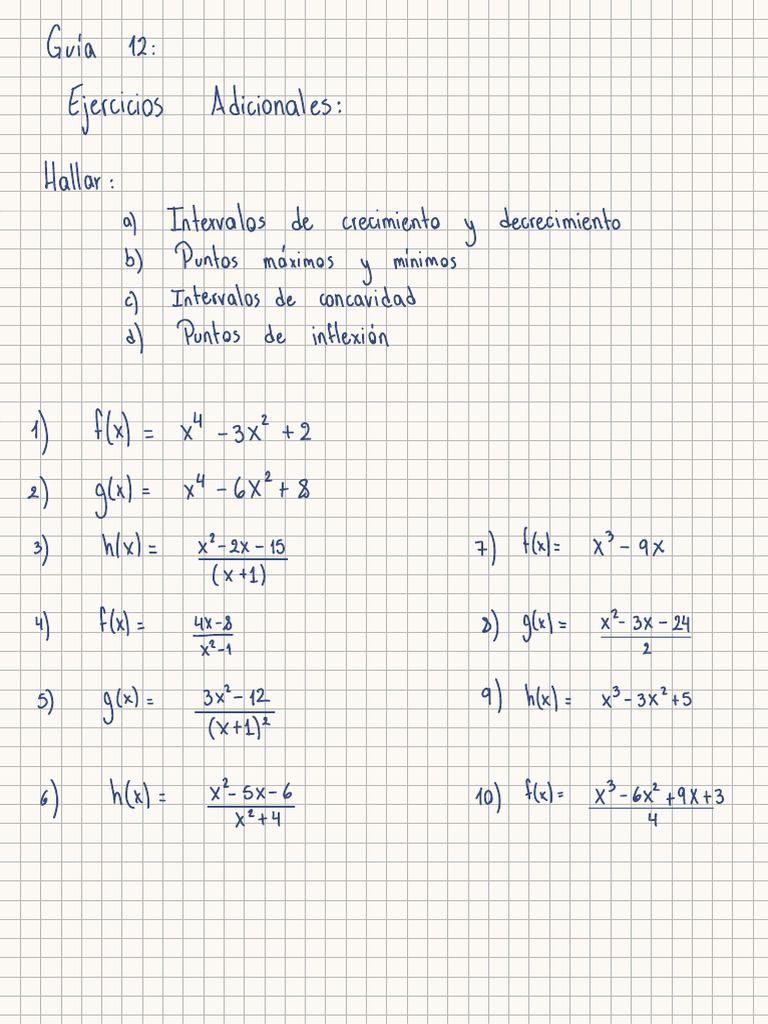 Guía 12:
Ejercicios Adicionales:
Hallar:
a) Intervalos de crecimiento y decrecimiento
b) Puntos máximos y mínimos
c) Intervalos de concavidad
d) Puntos de inflexión
1) f(x) = x⁴ - 3x² + 2
2) g(x) = x⁴ - 6x² + 8
3) h(x) = (x² - 2x - 15)/(x+1)
4) f(x) = (4x - 8)/(x² - 1)
5) g(x) = (3x² - 12)/(x+1)²
6) h(x) = (x² - 5x - 6)/(x² + 4)
7) f(x) = x³ - 9x
8) g(x) = (x² - 3x - 24)/2
9) h(x) = x³ - 3x² + 5
10) f(x) = (x³ - 6x² + 9x + 3)/4